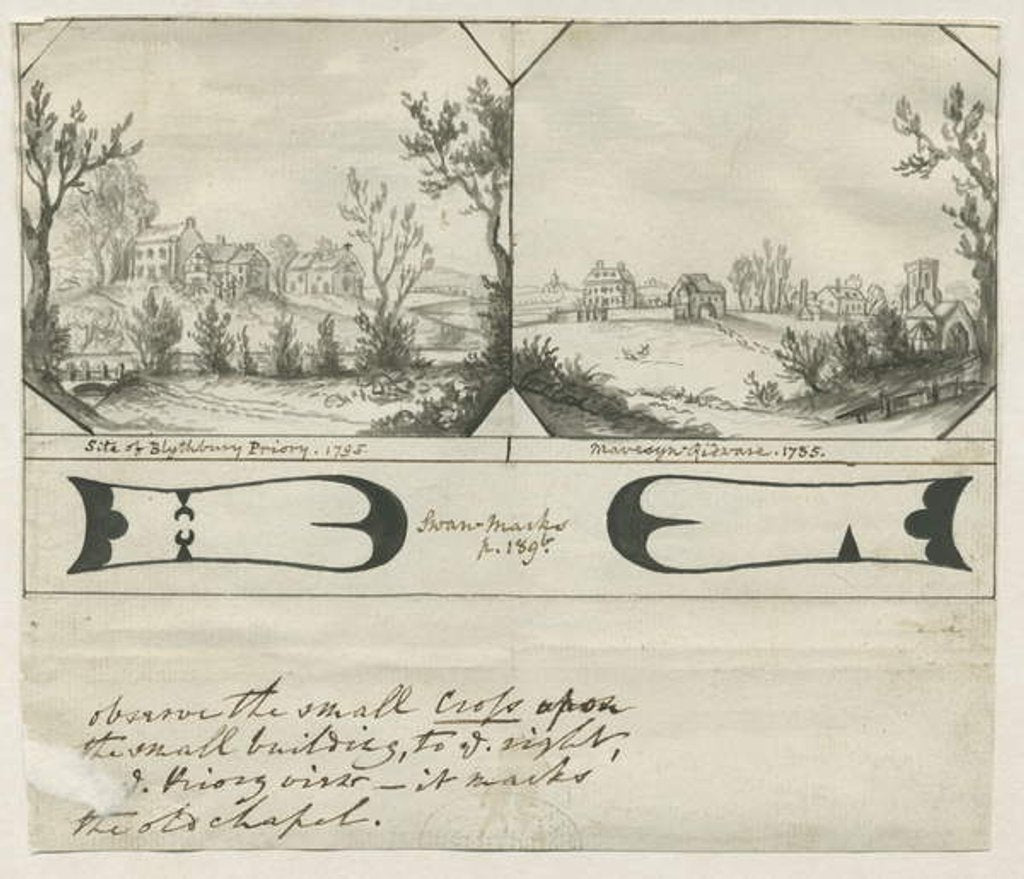 Site of Blythbury Priory. 1795
Mavesyn-Ridware. 1785.
Swan-Marks
p. 189.
observe the small Cross upon
the small building, to ye. right,
Priory view – it marks
the old chapel.